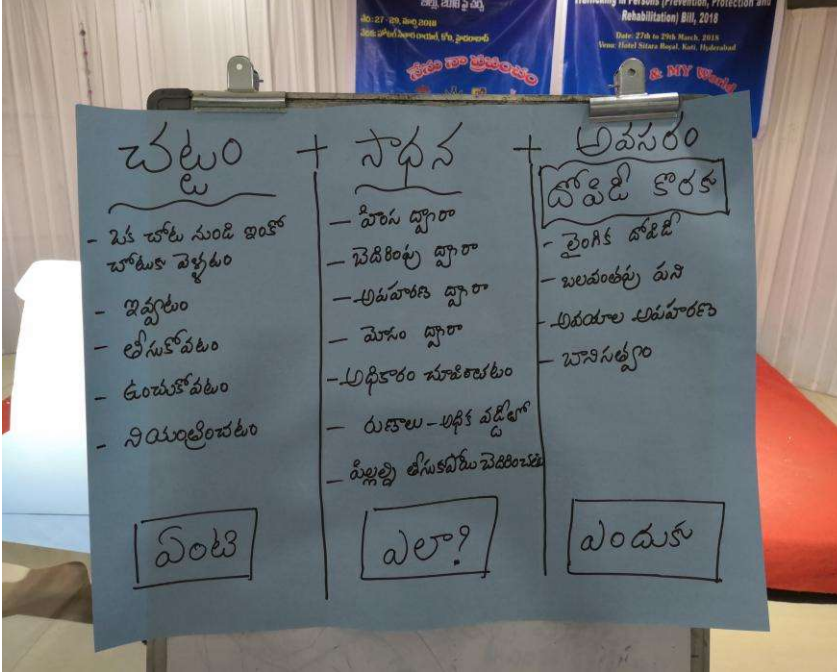 బిల్లు, 2018 పై చర్చ
తేది: 27 - 29, మార్చి 2018
హైదరాబాద్
నేను నా ప్రపంచం
Trafficking in Persons (Prevention, Protection and
Rehabilitation) Bill, 2018
Date: 27th to 29th March, 2018
Venue: Hotel Sitara Royal, Koti, Hyderabad
& MY World
చట్టం + సాధన + అవసరం
దోపిడీ కొరకు
- ఒక చోటు నుండి ఇంకో
చోటుకు వెళ్ళటం
- ఇవ్వటం
- తీసుకోవటం
- ఉంచుకోవటం
- నియంత్రించటం
ఏంటి
- హింస ద్వారా
- బెదిరింపు ద్వారా
- అపహరణ ద్వారా
- మోసం ద్వారా
- అధికారం చూపించటం
- రుణాలు - అధిక వడ్డీలో
- పిల్లల్ని తీసుకపోయి బెదిరించుట
ఎలా?
- లైంగిక దోపిడీ
- బలవంతపు పని
- అవయాల అపహరణ
- బానిసత్వం
ఎందుకు